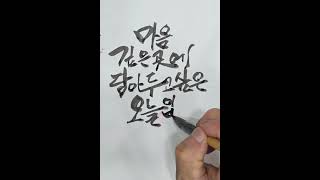 마음
깊은 곳에
담아두고 싶은
오늘의